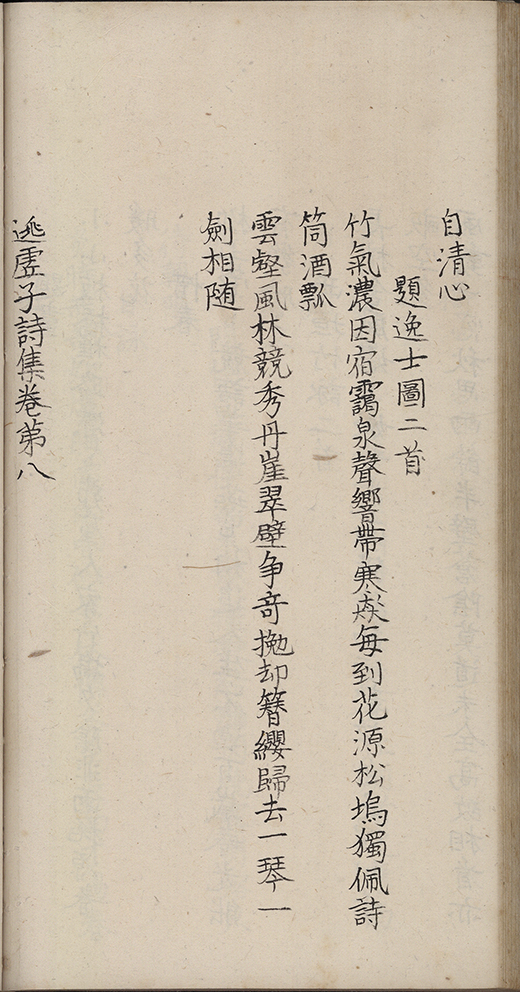 自清心
題逸士圖二首
竹氣濃因宿靄泉聲響帶寒飈每到花源松塢獨佩詩
筒酒瓢
雲壑風林競秀丹崖翠壁争竒抛却簪纓歸去一琴一
劍相随
逃虛子詩集卷第八